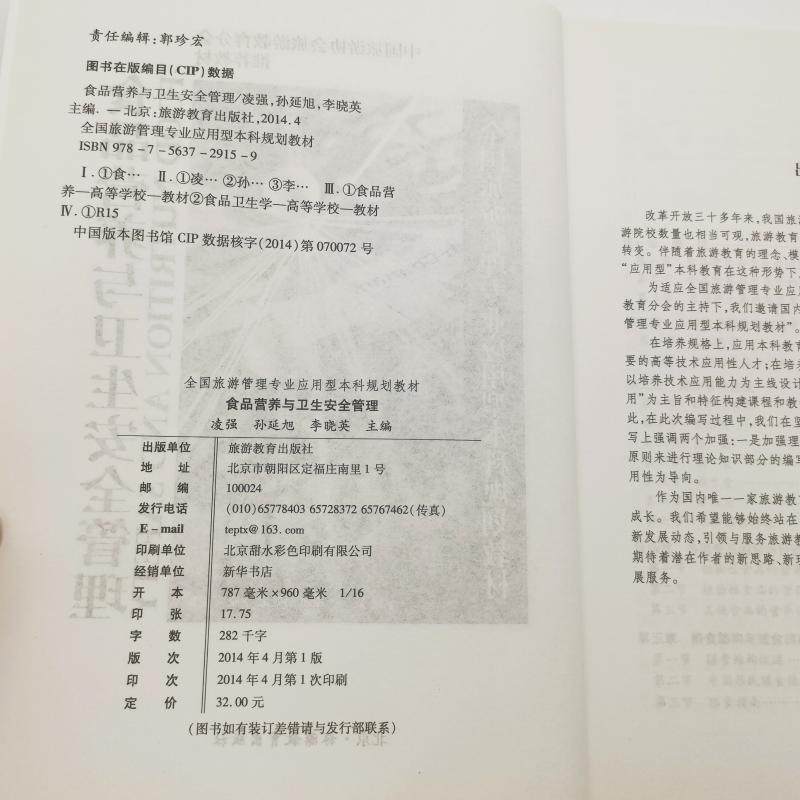 责任编辑：郭珍宏
图书在版编目（CIP）数据
食品营养与卫生安全管理/凌强，孙延旭，李晓英
主编. —北京：旅游教育出版社，2014.4
全国旅游管理专业应用型本科规划教材
ISBN 978-7-5637-2915-9
Ⅰ.①食… Ⅱ.①凌… ②孙… ③李… Ⅲ.①食品营
养—高等学校—教材②食品卫生学—高等学校—教材
Ⅳ.①R15
中国版本图书馆 CIP 数据核字（2014）第 070072 号
全国旅游管理专业应用型本科规划教材
食品营养与卫生安全管理
凌强 孙延旭 李晓英 主编
出版单位 旅游教育出版社
地 址 北京市朝阳区定福庄南里1号
邮 编 100024
发行电话 (010)65778403 65728372 65767462(传真)
E-mail teptx@163.com
印刷单位 北京甜水彩色印刷有限公司
经销单位 新华书店
开 本 787毫米×960毫米 1/16
印 张 17.75
字 数 282千字
版 次 2014年4月第1版
印 次 2014年4月第1次印刷
定 价 32.00元
（图书如有装订差错请与发行部联系）
改革开放三十多年来，我国旅
游院校数量也相当可观，旅游教育
转变。伴随着旅游教育的理念、模
“应用型”本科教育在这种形势下
为适应全国旅游管理专业应
教育分会的主持下，我们邀请国内
管理专业应用型本科规划教材”。
在培养规格上，应用本科教育
要的高等技术应用性人才；在培养
以培养技术应用能力为主线设计
用”为主旨和特征构建课程和教
此，在此次编写过程中，我们在坚
写上强调两个加强：一是加强理
原则来进行理论知识部分的编写
用性为导向。
作为国内唯一一家旅游教育
成长。我们希望能够始终站在
新发展动态，引领与服务旅游教
期待着潜在作者的新思路、新
展服务。